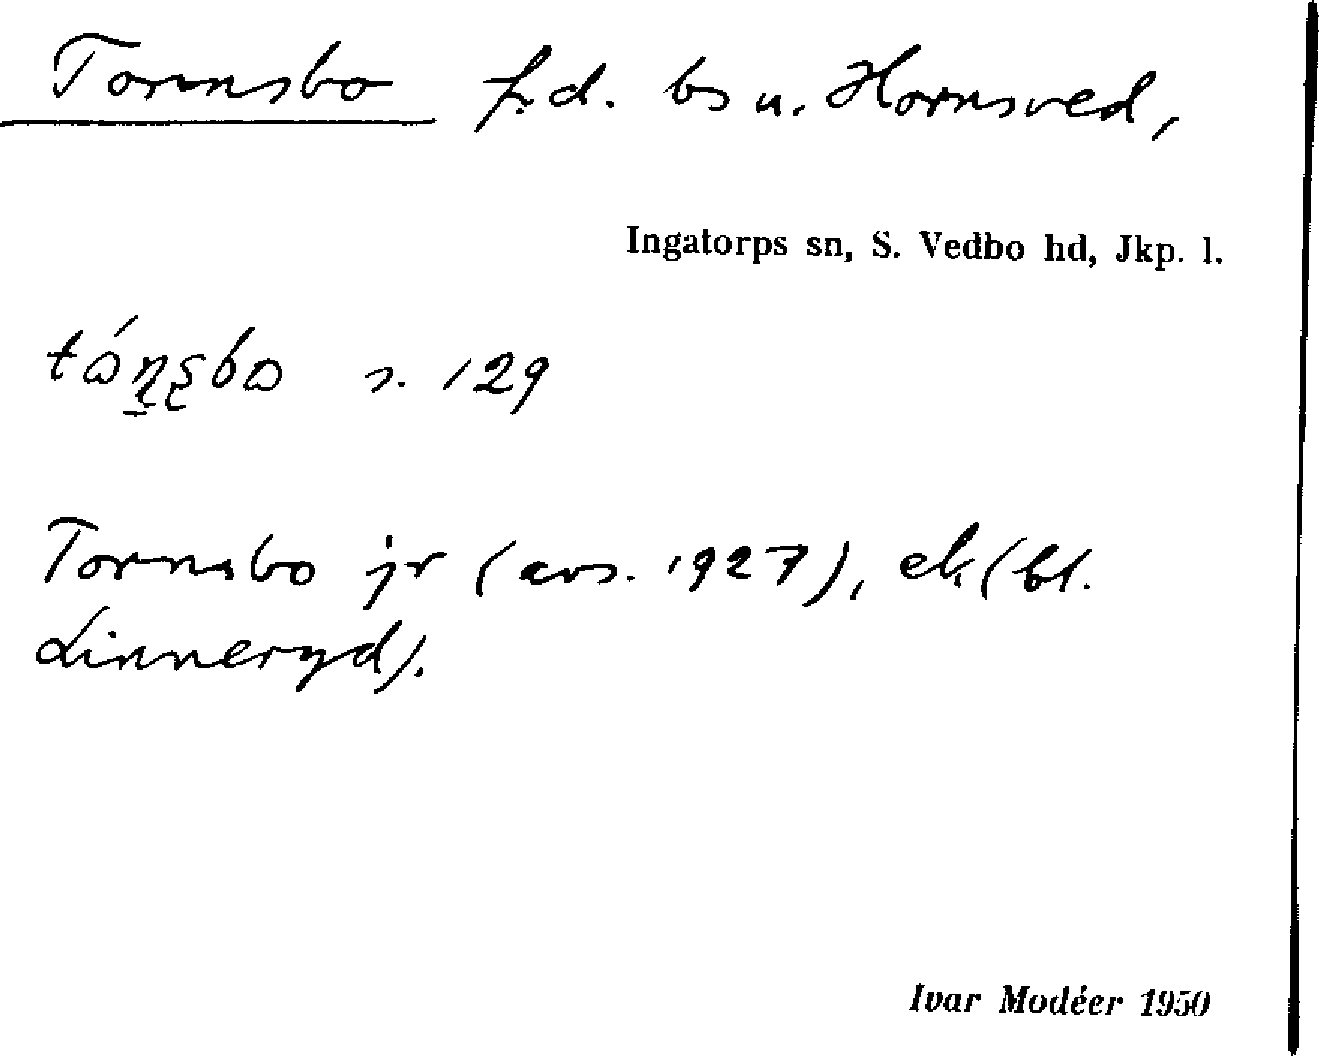 Tornsbo f.d. bs u. Hornsved,
Ingatorps sn, S. Vedbo hd, Jkp. l.
s. 129
Tornsbo jr (avs. 1927), ek (bl.
Linneryd).
Ivar Modéer 1950